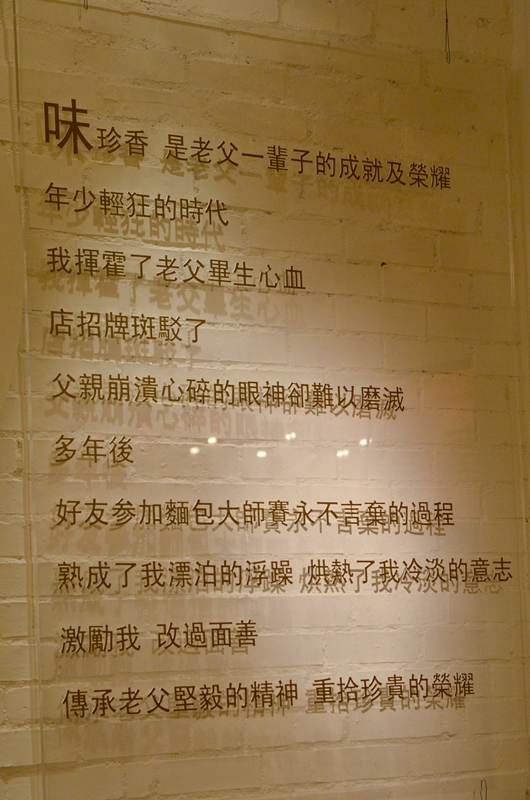 味珍香 是老父一輩子的成就及榮耀
年少輕狂的時代
我揮霍了老父畢生心血
店招牌斑駁了
父親崩潰心碎的眼神卻難以磨滅
多年後
好友參加麵包大師賽永不言棄的過程
熟成了我漂泊的浮躁 烘熱了我冷淡的意志
激勵我 改過面善
傳承老父堅毅的精神 重拾珍貴的榮耀